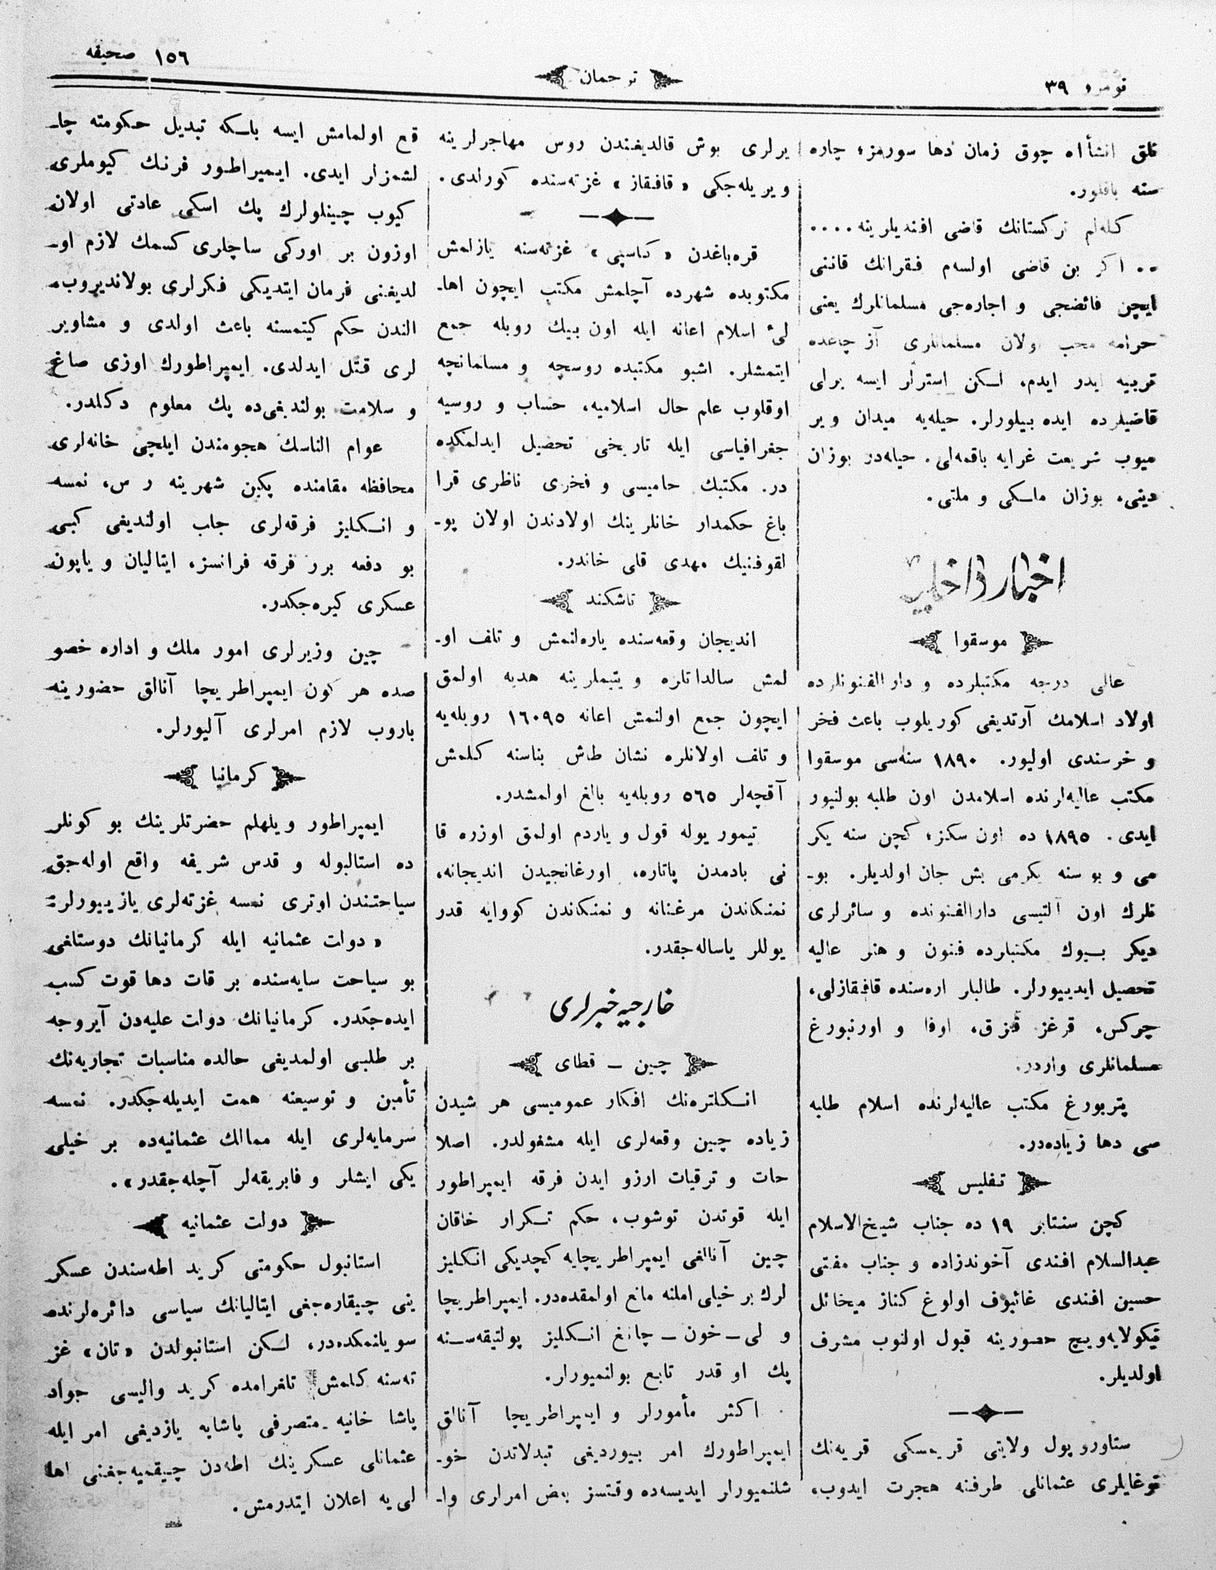 نومرو ٣٩
ترجمان
١٥٦ صحیفه
نلق انشأاه چوق زمان دها سورمز؛ چاره
سنه باقلور.
كله‌لم تركستانك قاضی افندیلرینه....
.. اكر بن قاضی اولسه‌م فقرانك قاننی
ایچن فائضجی و اجاره‌جی مسلمانلرك یعنی
حرامه محب اولان مسلمانلری آز چاغده
تربیه ایدر ایدم، لكن استرلر ایسه برلی
قاضیلرده ایده بیلورلر. حیله‌یه میدان ویر
میوب شریعت غرایه باقمه‌لی. حیله‌در بوزان
دینی، بوزان ملكی و ملتی.
اخبار داخلیه
موسقوا
عالی درجه مكتبلرده و دارالفنونلرده
اولاد اسلامك آرتدیغی كوریلوب باعث فخر
و خرسندی اولیور. ١٨٩٠ سنه‌سی موسقوا
مكتب عالیه‌لرنده اسلامدن اون طلبه بولنیور
ایدی. ١٨٩٥ ده اون سكز؛ كچن سنه یكر
می و بو سنه یكرمی بش جان اولدیلر. بو-
نلرك اون آلتیسی دارالفنونده و سائرلری
دیكر بیوك مكتبلرده فنون و هنر عالیه
تحصیل ایدییورلر. طالبلر اره‌سنده قافقازلی،
چركس، قرغز قزق، اوفا و اورنبورغ
مسلمانلری واردر.
پتربورغ مكتب عالیه‌لرنده اسلام طلبه
سی دها زیاده‌در.
تفلیس
كچن سنتابر ١٩ ده جناب شیخ‌الاسلام
عبدالسلام افندی آخوندزاده و جناب مفتی
حسین افندی غائبوف اولوغ كناز میخائل
نیكولایه‌ویچ حضورینه قبول اولنوب مشرف
اولدیلر.
ستاوروپول ولایتی قریمسكی قریه‌نك
نوغایلری عثمانلی طرفنه هجرت ایدوب،
یرلری بوش قالدیغندن روس مهاجرلرینه
ویریله‌جكی «قافقاز» غزته‌سنده كورلدی.
قره‌باغدن «كاسپی» غزته‌سنه یازلمش
مكتوبده شهرده آچلمش مكتب ایچون اها-
لیٔ اسلام اعانه ایله اون بیك روبله جمع
ایتمشلر. اشبو مكتبده روسچه و مسلمانچه
اوقلوب علم حال اسلامیه، حساب و روسیه
جغرافیاسی ایله تاریخی تحصیل ایدلمكده
در. مكتبك حامیسی و فخری ناظری قرا
باغ حكمدار خانلرینك اولادندن اولان پو-
لقوفنیك مهدی قلی خاندر.
تاشكند
اندیجان وقعه‌سنده یاره‌لنمش و تلف او-
لمش سالداتلره و یتیملرینه هدیه اولمق
ایچون جمع اولنمش اعانه ١٦٠٩٥ روبله‌یه
و تلف اولانلره نشان طاش بناسنه كلمش
آقچه‌لر ٥٦٥ روبله‌یه بالغ اولمشدر.
تیمور یوله قول و یاردم اولمق اوزره قا
نی بادمدن پاتاره، اورغانجیدن اندیجانه،
نمنكاندن مرغنانه و نمنكاندن كووایه قدر
یوللر یاساله‌جقدر.
خارجیه خبرلری
چین – قطای
انكلتره‌نك افكار عمومیسی هر شیدن
زیاده چین وقعه‌لری ایله مشغولدر. اصلا
حات و ترقیات ارزو ایدن فرقه ایمپراطور
ایله قوتدن توشوب، حكم تكرار خاقان
چین آنالغی ایمپراطریچایه كچدیكی انكلیز
لرك بر خیلی املنه مانع اولمقده‌در. ایمپراطریچا
و لی-خون-چانغ انكلیز پولتیقه‌سنه
پك او قدر تابع بولنمیورلر.
اكثر مأمورلر و ایمپراطریچا آنالق
ایمپراطورك امر بیوردیغی تبدلاتدن خو-
شلنمیورلر ایدیسه‌ده وقتسز بعض امرلری وا-
قع اولمامش ایسه باسكه تبدیل حكومته چا-
لشمزلر ایدی. ایمپراطور فرنك كیوملری
كیوب چینلولرك پك اسكی عادتی اولان
اوزون بر اوركی ساچلری كسمك لازم او-
لدیغنی فرمان ایتدیكی فكرلری بولاندیروب،
الندن حكم كیتمسنه باعث اولدی و مشاویر
لری قتل ایدلدی. ایمپراطورك اوزی صاغ
و سلامت بولندیغی‌ده پك معلوم دكلدر.
عوام الناسك هجومندن ایلچی خانه‌لری
محافظه مقامنده پكین شهرینه روس، نمسه
و انكلیز فرقه‌لری جلب اولندیغی كبی
بو دفعه برر فرقه فرانسز، ایتالیان و یاپون
عسكری كیره‌جكدر.
چین وزیرلری امور ملك و اداره خصو
صده هر كون ایمپراطریچا آنالق حضورینه
باروب لازم امرلری آلیورلر.
كرمانیا
ایمپراطور ویلهلم حضرتلرینك بو كونلر
ده استانبوله و قدس شریفه واقع اوله‌جق
سیاحتندن اوتری نمسه غزته‌لری یازییورلر:
«دولت عثمانیه ایله كرمانیانك دوستلغی
بو سیاحت سایه‌سنده بر قات دها قوت كسب
ایده‌جكدر. كرمانیانك دولت علیه‌دن آیروجه
بر طلبی اولمدیغی حالده مناسبات تجاریه‌نك
تأمین و توسیعنه همت ایدیله‌جكدر. نمسه
سرمایه‌لری ایله ممالك عثمانیه‌ده بر خیلی
یكی ایشلر و فابریقه‌لر آچله‌جقدر».
دولت عثمانیه
استانبول حكومتی كرید اطه‌سندن عسكر
ینی چیقاره‌جغی ایتالیانك سیاسی دائره‌لرنده
سویلنمكده‌در، لكن استانبولدن «تان» غز
ته‌سنه كلمش تلغرامده كرید والیسی جواد
پاشا خانیه متصرفی پاشایه یازدیغی امر ایله
عثمانلی عسكرینك اطه‌دن چیقمیه‌جغنی اها
لی یه اعلان ایتدرمش.